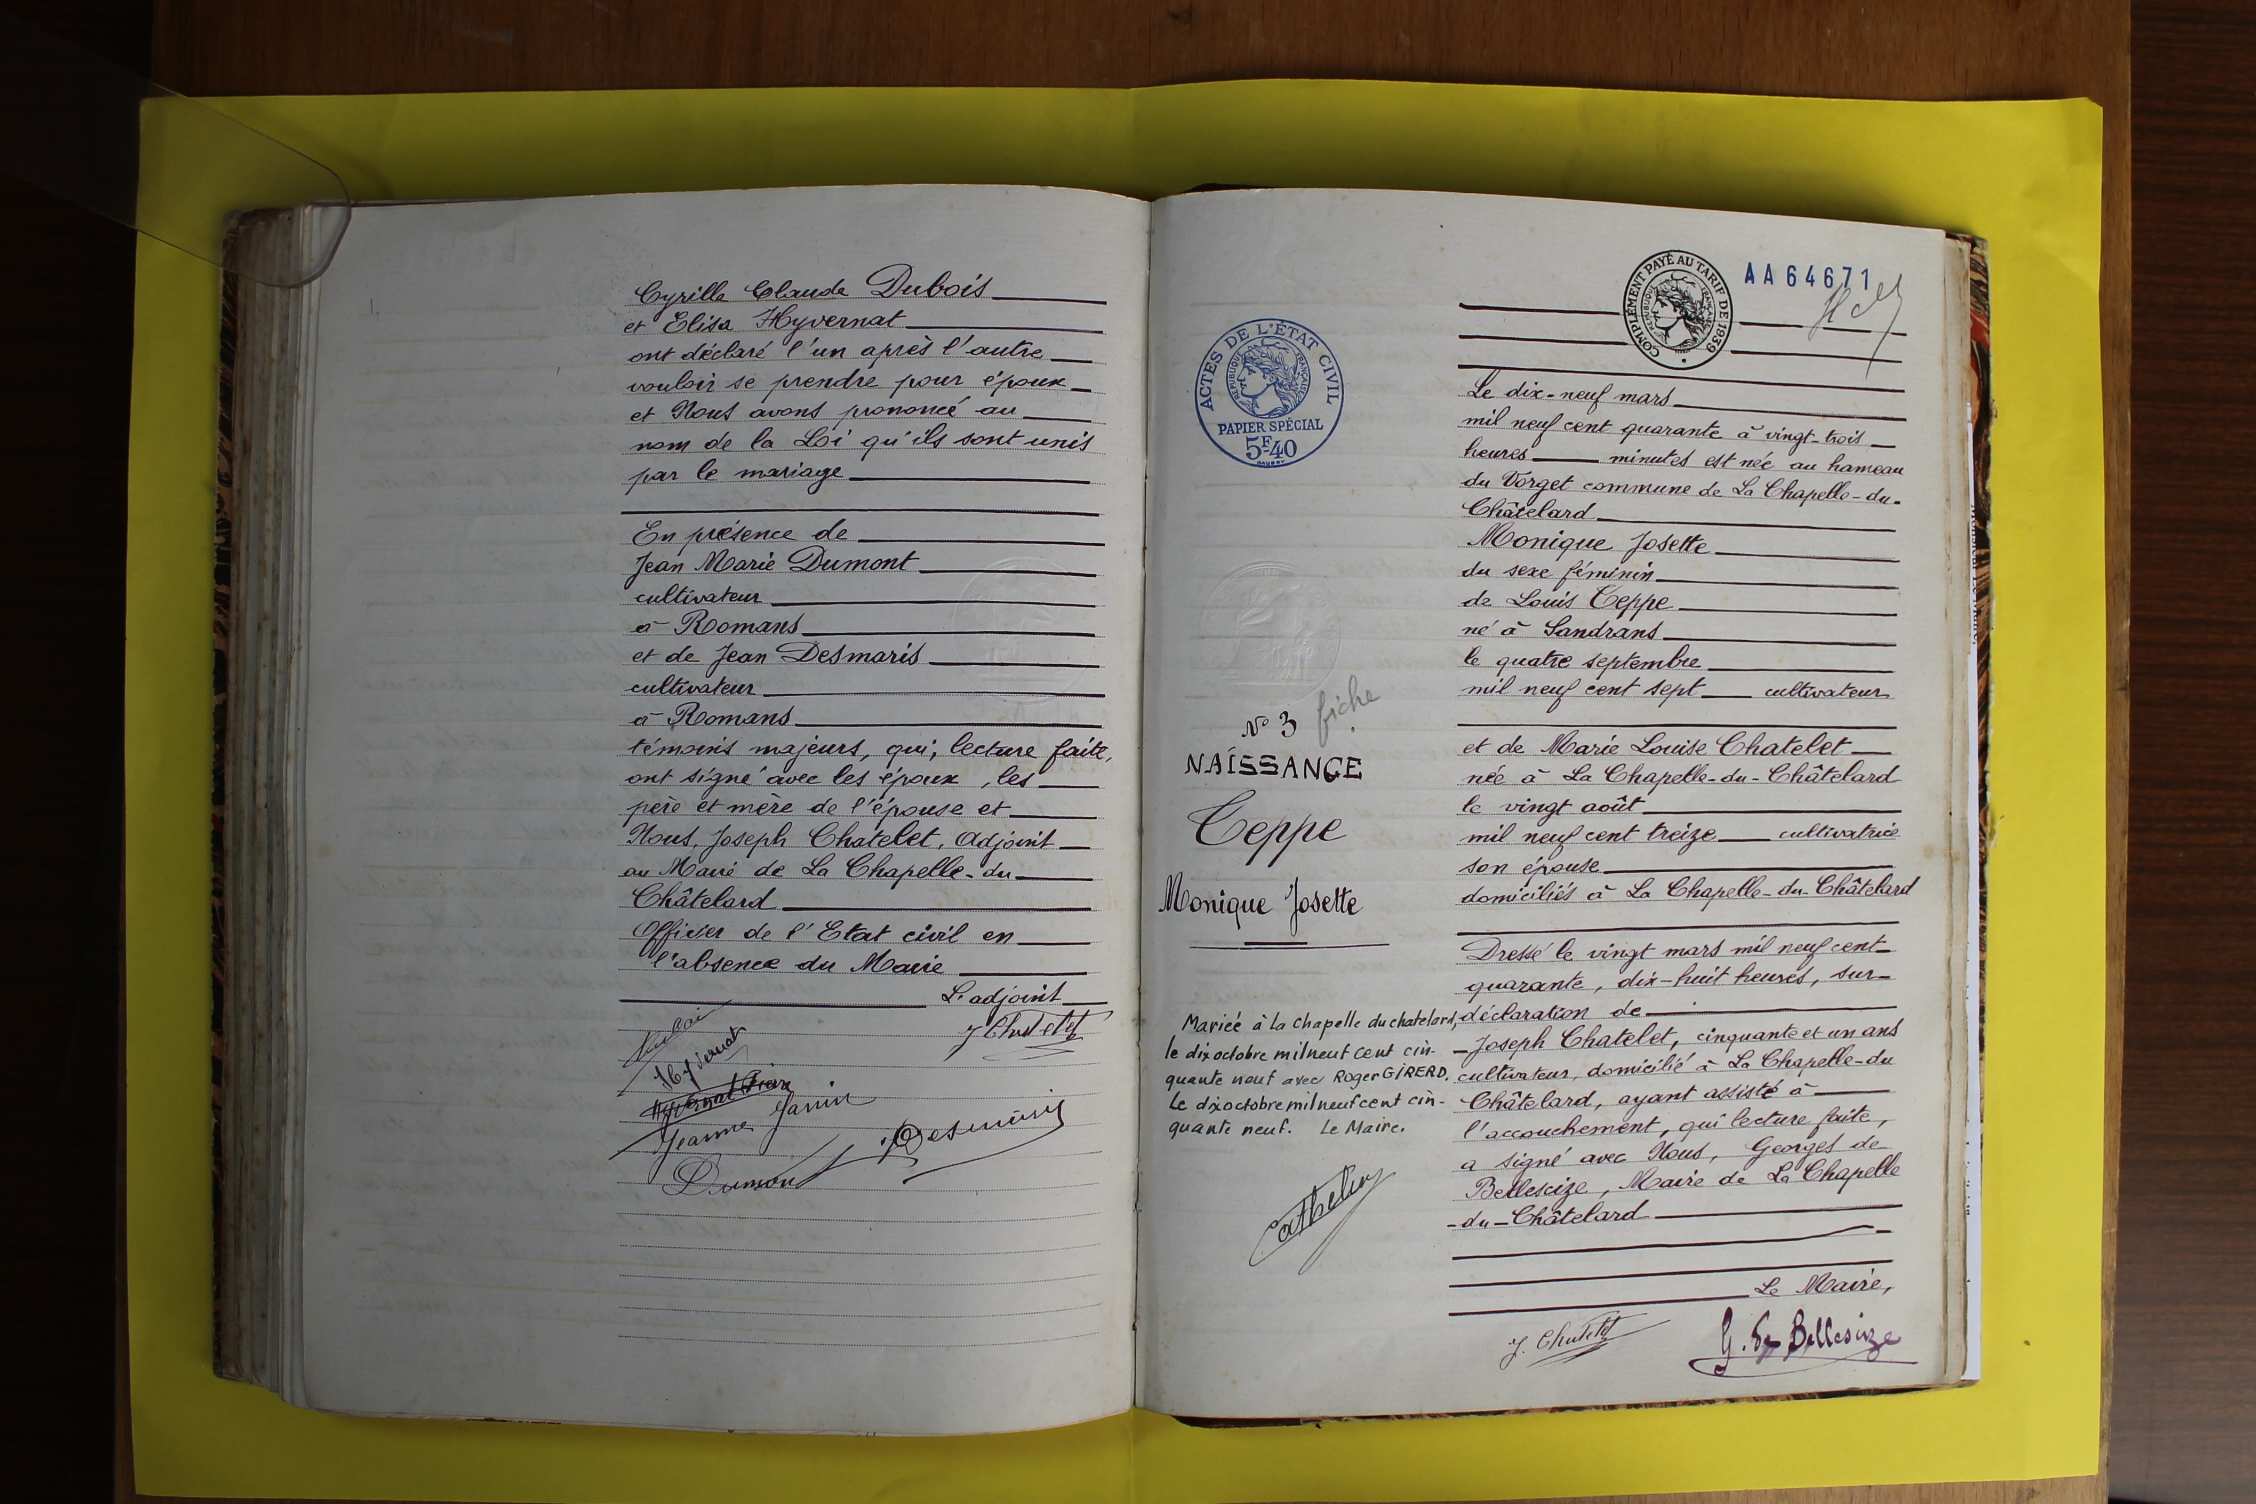 Cyrille Claude Dubois
et Elisa Hyvernat
ont déclaré l'un après l'autre
vouloir se prendre pour époux
et Nous avons prononcé au
nom de la Loi qu'ils sont unis
par le mariage
En présence de
Jean Marie Dumont
cultivateur
à Romans
et de Jean Desmaris
cultivateur
à Romans
témoins majeurs, qui, lecture faite,
ont signé avec les époux, les
père et mère de l'épouse et
Nous, Joseph Chatelet, Adjoint
au Maire de La Chapelle-du-
Châtelard
Officier de l'Etat civil en
l'absence du Maire
L'adjoint
J Chatelet
Hyvernat
Jeanne Janin
Dumont
Desmaris
AA64671
COMPLÉMENT PAYÉ AU TARIF DE 1939
RÉPUBLIQUE FRANÇAISE
ACTES DE L'ÉTAT CIVIL
RÉPUBLIQUE FRANÇAISE
PAPIER SPÉCIAL
5F40
N° 3 fiche
NAISSANCE
Teppe
Monique Josette
Mariée à la Chapelle du chatelard,
le dix octobre mil neuf cent cin-
quante neuf avec Roger GIRERD.
Le dix octobre mil neuf cent cin-
quante neuf. Le Maire.
Le dix-neuf mars
mil neuf cent quarante à vingt-trois
heures minutes est née au hameau
du Vorget commune de La Chapelle-du-
Châtelard
Monique Josette
du sexe féminin
de Louis Teppe
né à Sandrans
le quatre septembre
mil neuf cent sept cultivateur
et de Marie Louise Chatelet
née à La Chapelle-du-Châtelard
le vingt août
mil neuf cent treize cultivatrice
son épouse
domiciliés à La Chapelle-du-Châtelard
Dressé le vingt mars mil neuf cent
quarante, dix-huit heures, sur
déclaration de
Joseph Chatelet, cinquante et un ans
cultivateur, domicilié à La Chapelle-du
Châtelard, ayant assisté à
l'accouchement, qui lecture faite,
a signé avec Nous, Georges de
Bellescize, Maire de La Chapelle
-du-Châtelard
Le Maire,
J. Chatelet
G. de Bellescize